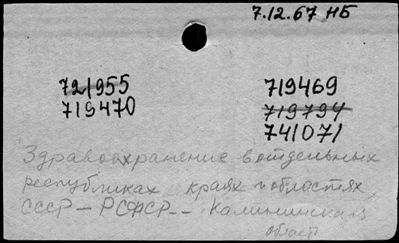 7.12.67 НБ
721955 719469
719470 719794
741071
Здравоохранение в отдельных
республиках краях и областях,
СССР – РСФСР – Калининская
област